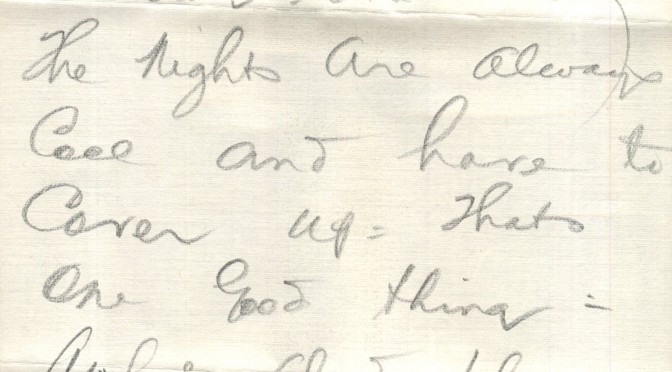 The Nights Are Always
Cool and have to
Cover up = Thats
One Good thing =